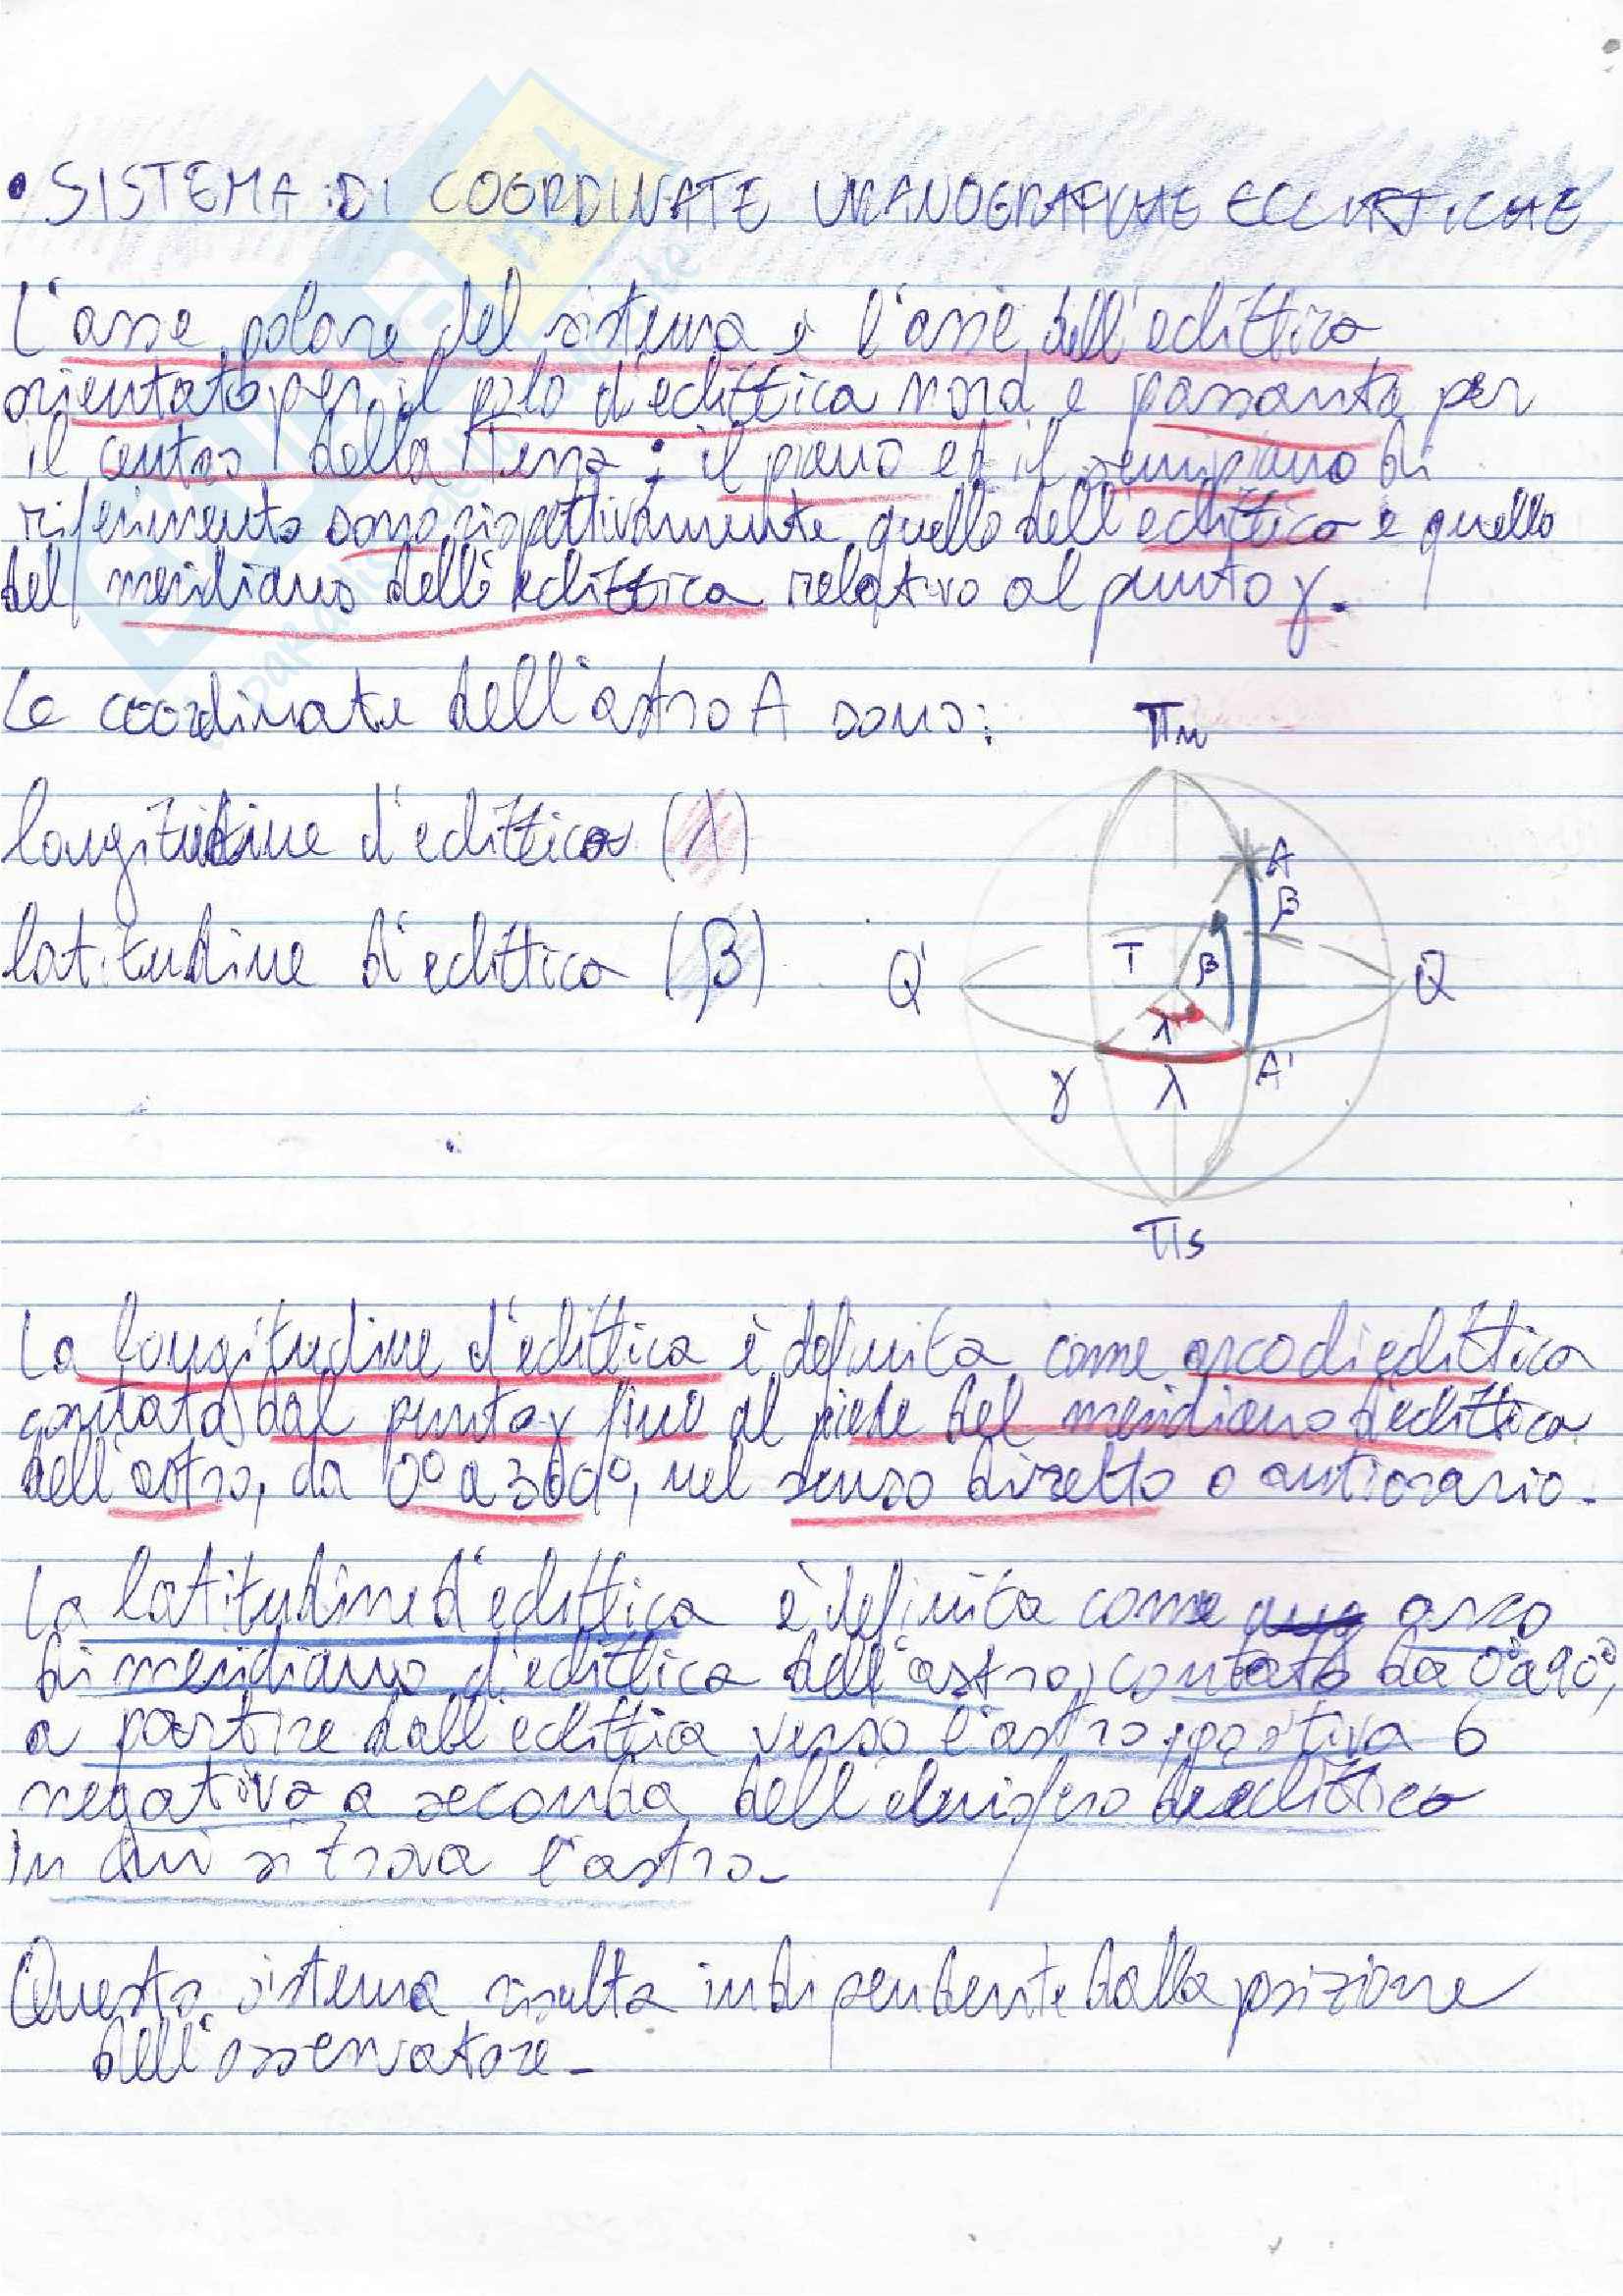 • SISTEMA DI COORDINATE URANOGRAFICHE ECCLITTICHE
L'asse polare del sistema è l'asse dell'eclittica
orientato per il polo d'eclittica nord e passante per
il centro della Terra; il piano ed il semipiano di
riferimento sono rispettivamente quello dell'eclittica e quello
del meridiano dell'eclittica relativo al punto γ.
Le coordinate dell'astro A sono:
longitudine d'eclittica (λ)
latitudine d'eclittica (β)
Πn
A
β
T
β
Q'
Q
λ
γ
λ
A'
Πs
La longitudine d'eclittica è definita come arco di eclittica
contato dal punto γ fino al piede del meridiano d'eclittica
dell'astro, da 0° a 360°, nel senso diretto o antiorario.
La latitudine d'eclittica è definita come arco
di meridiano d'eclittica dell'astro, contato da 0° a 90°,
a partire dall'eclittica verso l'astro, positiva o
negativa a seconda dell'emisfero
in cui si trova l'astro.
Questo sistema risulta indipendente dalla posizione
dell'osservatore.